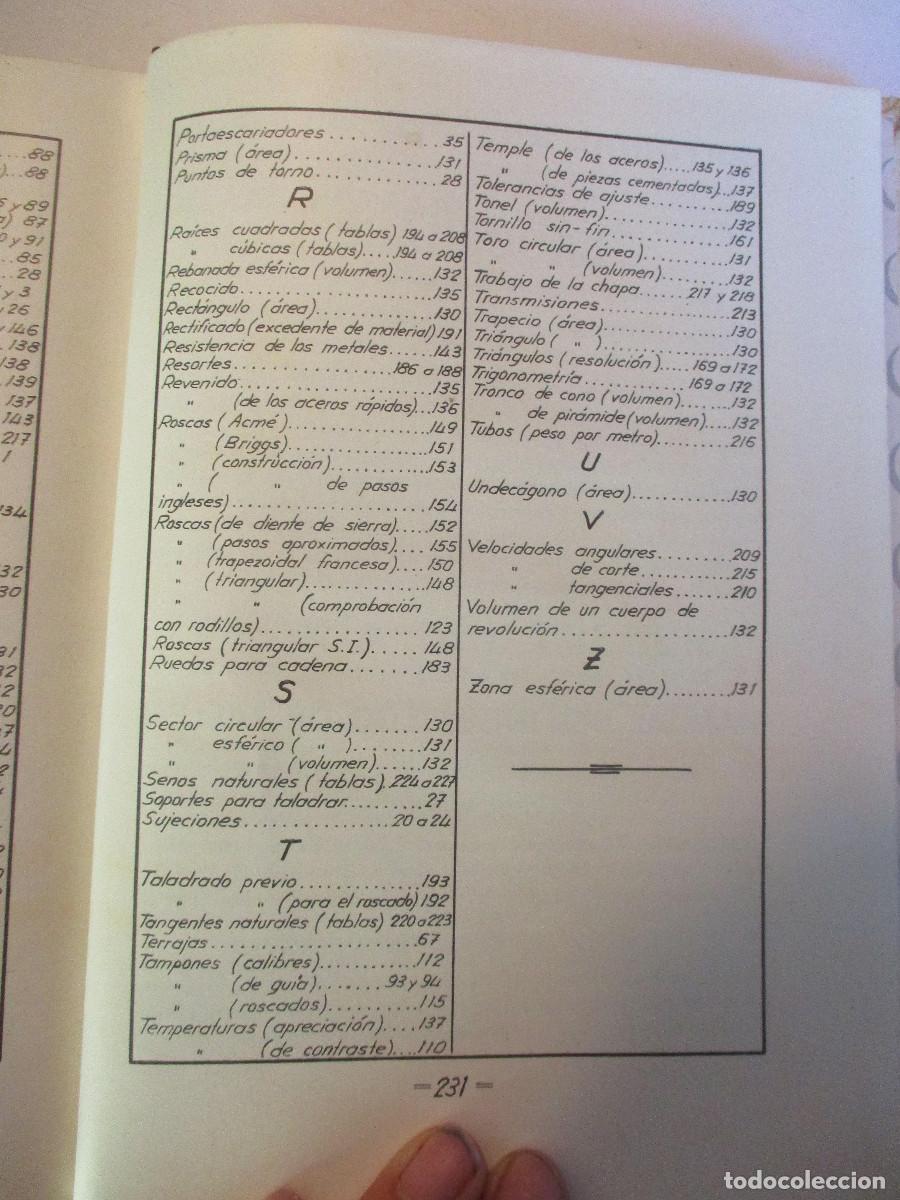 ....88
)...88
5 y 89
a) 87
0 y 91
....85
...28
y 3
y 26
y 146
..138
138
...139
137
143
217
1
134
32
30
31
32
12
20
47
4
2
Portaescariadores...........35
Prisma (área)..............131
Puntos de torno............28
R
Raíces cuadradas (tablas) 194 a 208
" cúbicas (tablas)....194 a 208
Rebanada esférica (volumen).....132
Recocido....................135
Rectángulo (área)............130
Rectificado (excedente de material) 191
Resistencia de los metales.....143
Resortes................186 a 188
Revenido....................135
" (de los aceros rápidos)...136
Roscas (Acmé)...............149
" (Briggs)..............151
" (construcción)..........153
" ( " de pasos
ingleses)....................154
Roscas (de diente de sierra)....152
" (pasos aproximados)....155
" (trapezoidal francesa)...150
" (triangular)............148
" " (comprobación
con rodillos)................123
Roscas (triangular S.I.).....148
Ruedas para cadena.......183
S
Sector circular (área).......130
" esférico ( " ).......131
" " (volumen)......132
Senos naturales (tablas). 224 a 227
Soportes para taladrar..........27
Sujeciones...............20 a 24
T
Taladrado previo.............193
" " (para el roscado) 192
Tangentes naturales (tablas) 220 a 223
Terrajas......................67
Tampones (calibres)..........112
" (de guía).......93 y 94
" (roscados)..........115
Temperaturas (apreciación)....137
" (de contraste)....110
Temple (de los aceros).....135 y 136
" (de piezas cementadas).137
Tolerancias de ajuste........189
Tonel (volumen)..............132
Tornillo sin-fin..............161
Toro circular (área)..........131
" " (volumen)........132
Trabajo de la chapa......217 y 218
Transmisiones...............213
Trapecio (área)..............130
Triángulo ( " )..............130
Triángulos (resolución)....169 a 172
Trigonometría...........169 a 172
Tronco de cono (volumen)......132
" de pirámide (volumen)....132
Tubos (peso por metro).......216
U
Undecágono (área)...........130
V
Velocidades angulares........209
" de corte............215
" tangenciales.......210
Volumen de un cuerpo de
revolución..................132
Z
Zona esférica (área).........131
= 231 =
todocoleccion